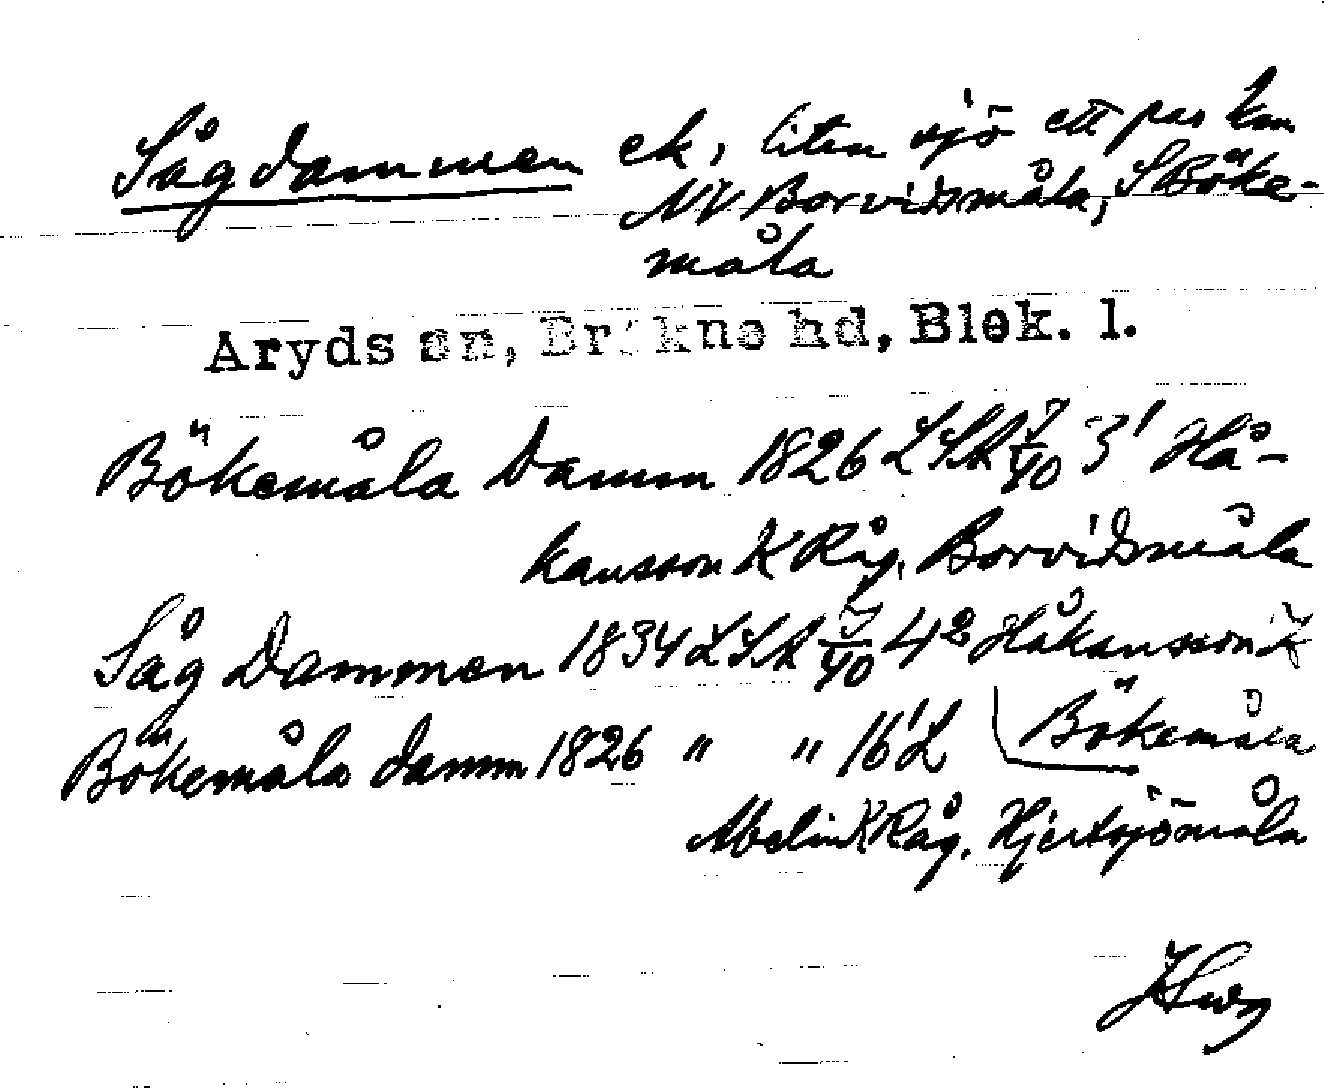 Sågdammen ek, liten sjö ett par km
NV Borvidsmåla, S Böke-
måla
Aryds sn, Bräkne hd, Blek. l.
Bökemåla Damm 1826 LSA J/40 3' Hå-
kansson K Råg, Borvidsmåla
Såg Dammen 1834 LSA J/40 4² Håkansson K
Bökemåla damm 1826 " " 16' L Bökemåla
Abelin K Råg, Hjertsjömåla